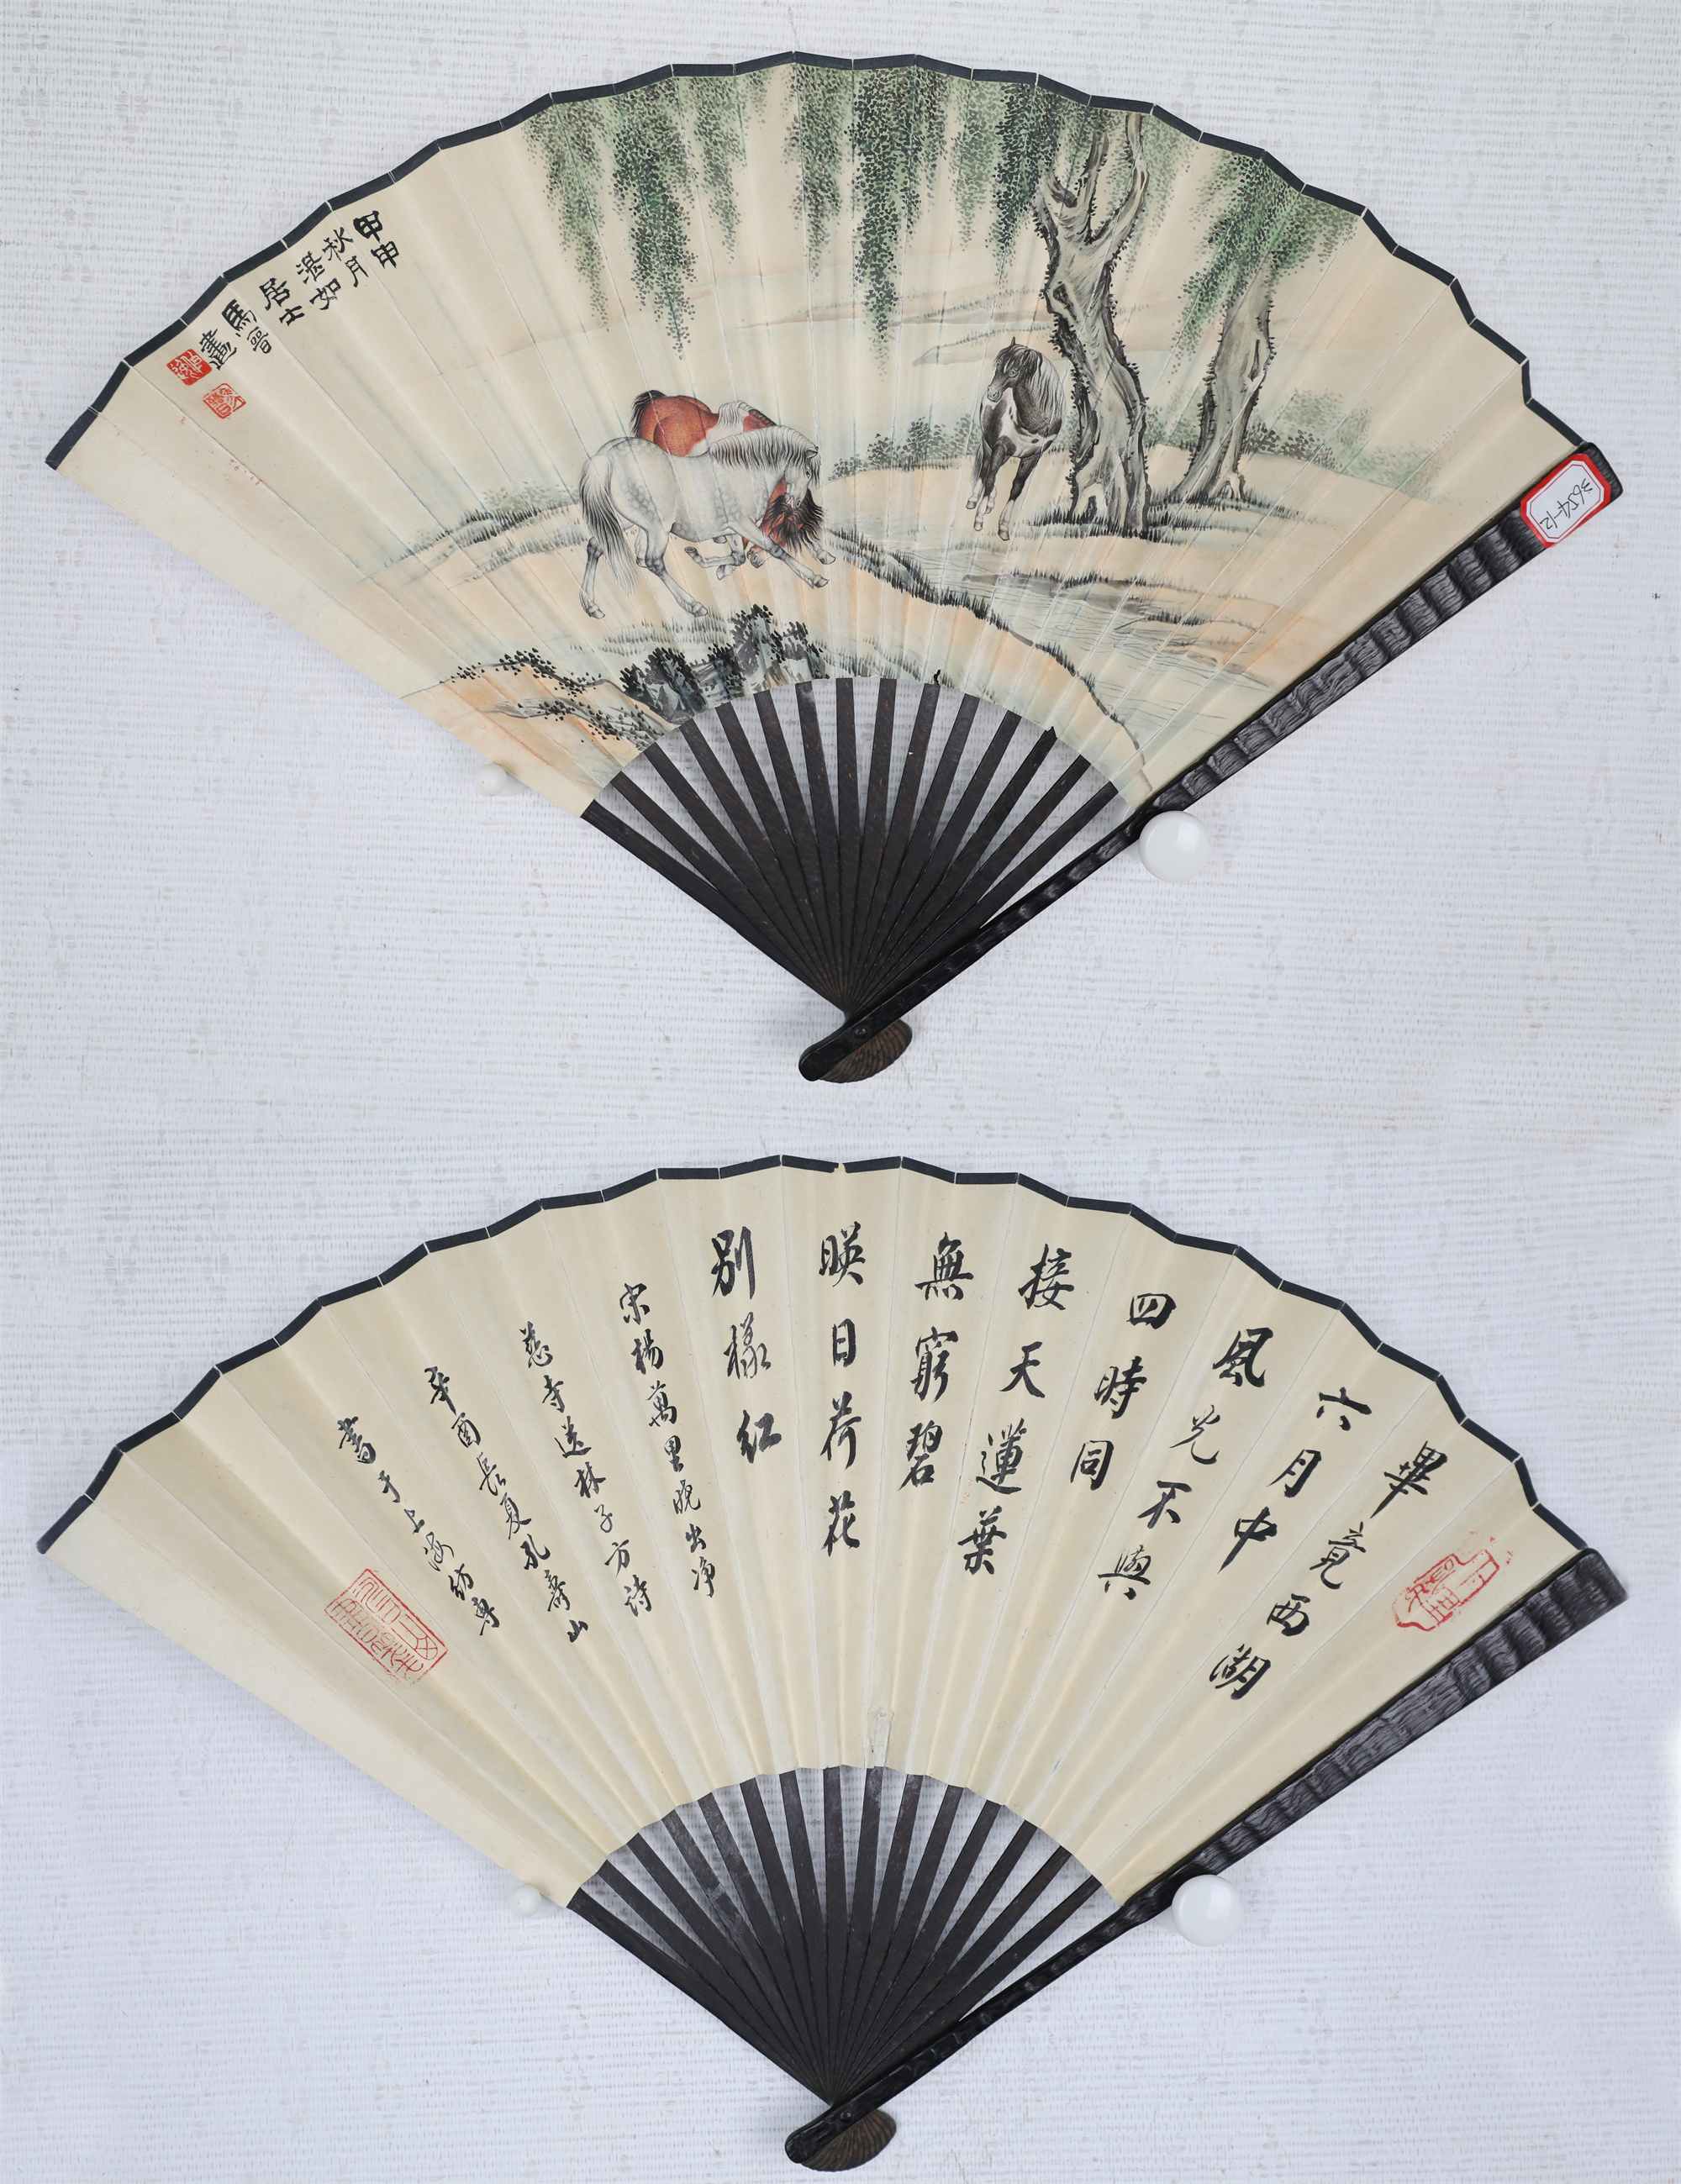 甲申
秋月
湛如
居士
馬晉
畫
3654-12
畢竟西湖
六月中
風光不與
四時同
接天蓮葉
無窮碧
映日荷花
別樣紅
宋楊萬里曉出净
慈寺送林子方詩
辛酉長夏孔壽山
書于上海紡專